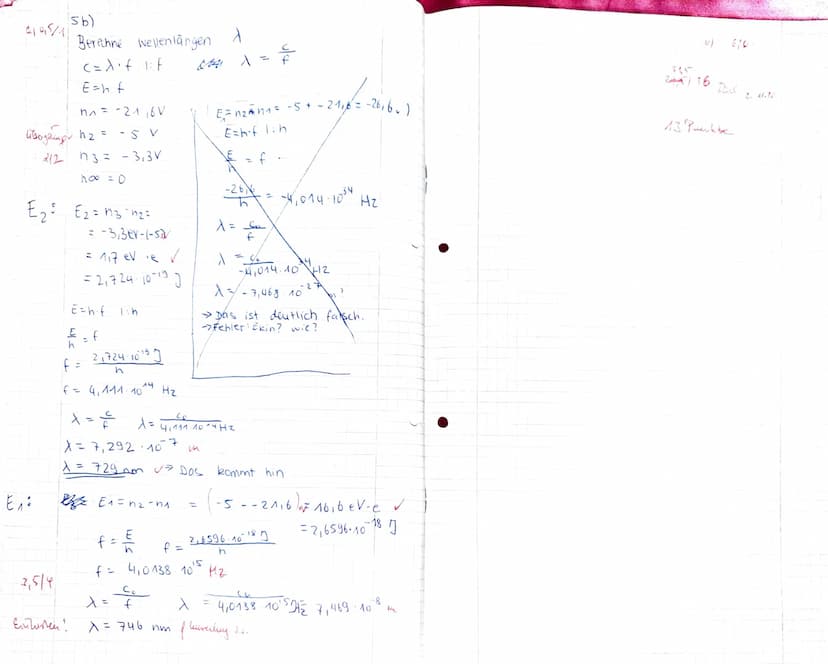 5b)
Berechne Wellenlängen λ
c = λ · f | : f λ = c/f
E = h f
n1 = -21,6V
n2 = -5 V
n3 = -3,3V
n∞ = 0
E2: E2 = n3 - n2 =
= -3,3eV-(-5)
= 1,7 eV · e ✓
= 2,724 · 10^-19 J
E = h·f | : h
E/h = f
f = 2,724 · 10^-19 J / h
f = 4,111 · 10^14 Hz
λ = c/f λ = c0 / 4,111 · 10^14 Hz
λ = 7,292 · 10^-7 m
λ = 729 nm ✓ → Das kommt hin
(E1 = n2 + n1 = -5 + -21,6 = -26,6 )
E = h·f | : h
E/h = f
-26,6 / h = -4,014 · 10^34 Hz
λ = c0 / f
λ = c0 / -4,014 · 10^34 Hz
λ = -7,469 · 10^-27 m
→ Das ist deutlich falsch.
→ Fehler: Ekin? wie?
E1: E1 = n2 - n1 = (-5 - -21,6) = 16,6 eV · e ✓
= 2,6596 · 10^-18 J
f = E/h f = 2,6596 · 10^-18 J / h
f = 4,0138 · 10^15 Hz
2,5/4
λ = c0 / f λ = c0 / 4,0138 · 10^15 Hz = 7,469 · 10^-8 m
Einheiten! λ = 746 nm f
13 Punkte